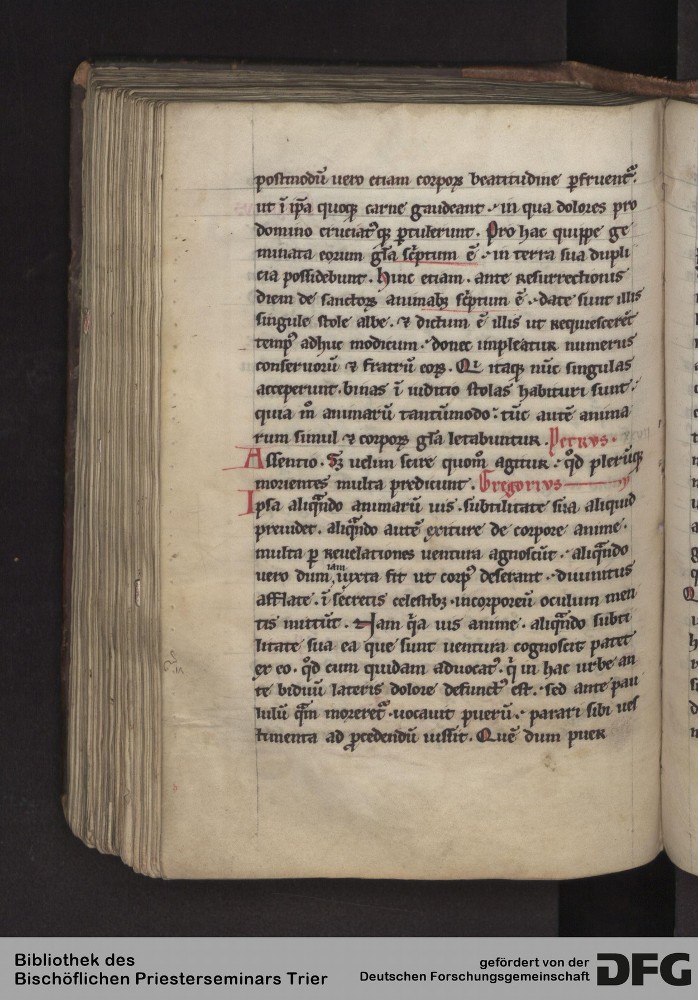 postmodū uero etiam corporꝝ beatitudine ꝑfruent᷑.
ut ī ip̄a quoqꝫ carne gaudeant. in qua dolores pro
domino cruciatꝰqꝫ ꝑtulerunt. Pro hac quippe ge
minata eorum gl̄a sc̄ptum ē. in terra sua dupli
cia possidebunt. hinc etiam. ante resurrectionis
diem de sanctorꝝ animabꝫ sc̄ptum ē. date sunt illis
singule stole albe. ⁊ dictum ē illis ut requiescerēt
tempꝰ adhuc modicum. donec impleatur numerus
conseruorū ⁊ fratrū eorꝝ. Qi itaqꝫ nūc singulas
acceperunt. binas ī iuditio stolas habituri sunt.
quia m̊ animarū tantūmodo. tūc autē anima
rum simul ⁊ corporꝝ gl̄a letabuntur. Petrus.
Assentio. Sꝫ uelim scire quom̊ agitur. qd̄ plerūqꝫ
morientes multa predicunt. Gregorius
Ipsa aliqn̄do animarū uis. subtilitate sua aliquid
preuidet. aliqn̄do autē exiture de corpore anime.
multa ꝑ reuelationes uentura agnoscūt. aliqn̄do
uero dum iam iuxta sit ut corpꝰ deserant. diuinitus
afflate. ī secretis celestibꝫ. incorporeū oculum men
tis mittūt. Nam qͥa uis anime. aliqn̄do subti
litate sua ea que sunt uentura cognoscit patet
ex eo. qd̄ cum quidam aduocatꝰ. qͥ in hac urbe an
te biduū lateris dolore defunctꝰ est. sed ante pau
lulū qͣm moreret᷑. uocauit puerū. parari sibi ues
timenta ad ꝓcedendū iussit. Quē dum puer
Bibliothek des
Bischöflichen Priesterseminars Trier
gefördert von der
Deutschen Forschungsgemeinschaft
DFG